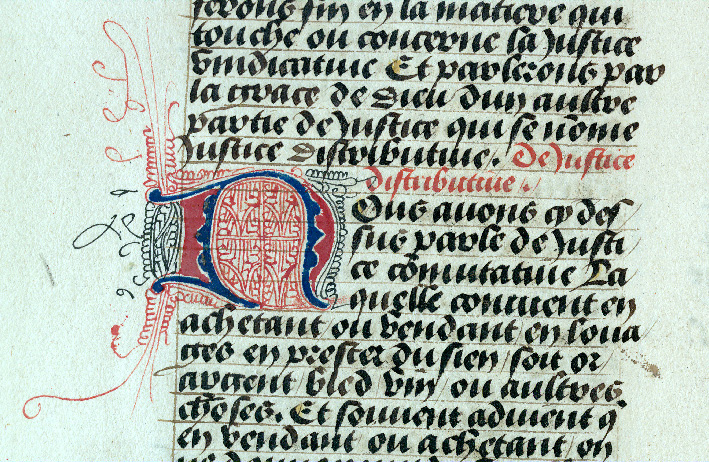 ferons fin en la matiere qui
touche ou concerne la Justice
vindicatiue Et parlerons par
la grace de Dieu dun aultre
partie de Justice qui se nōme
Justice distributiue. De Justice
distributiue.
Nous auons cy des
sus parle de Justi
ce cōmutatiue La
quelle conuient en
achetant ou vendant en loua
ges en prester du sien soit or
argent bled vin ou aultres
choses. Et souuent aduient q̄
en vendant ou achetant on